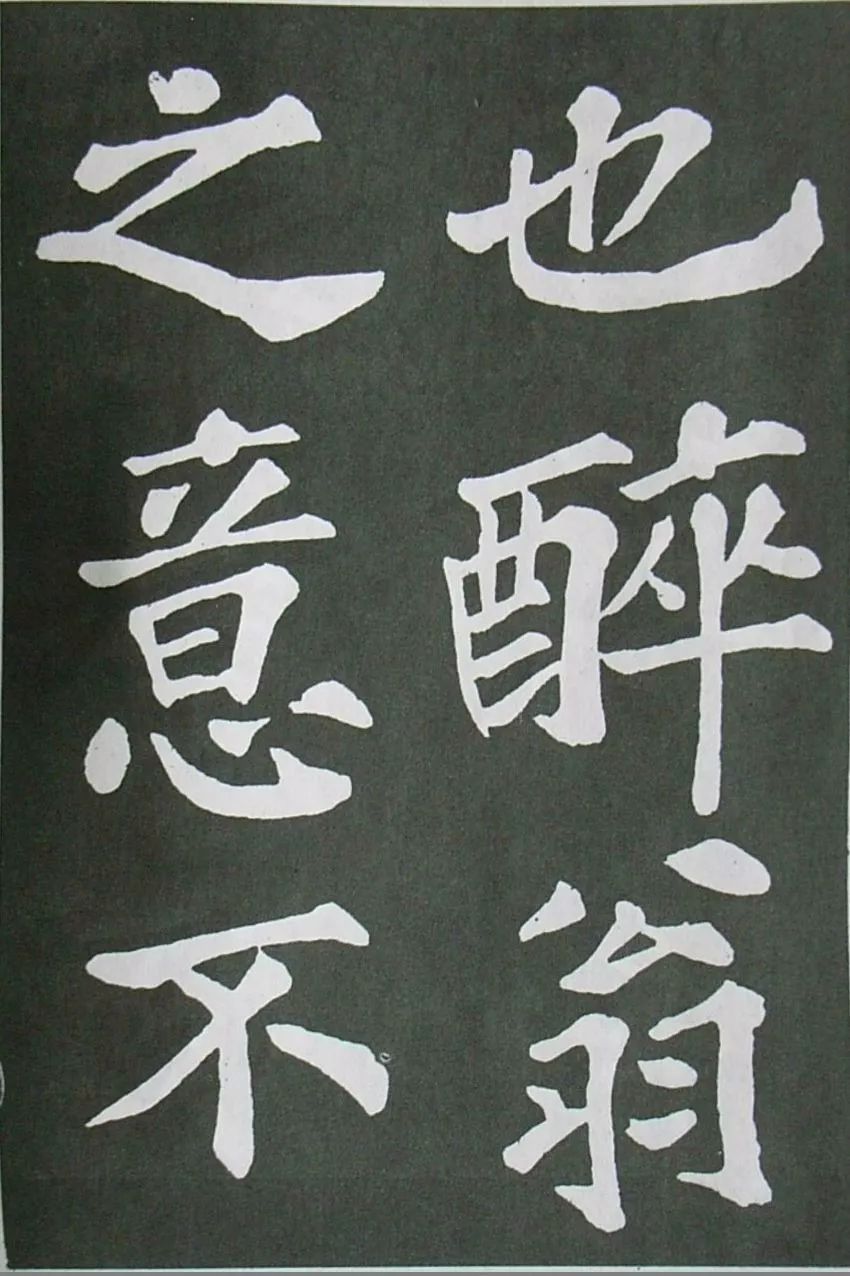 也醉翁
之意不